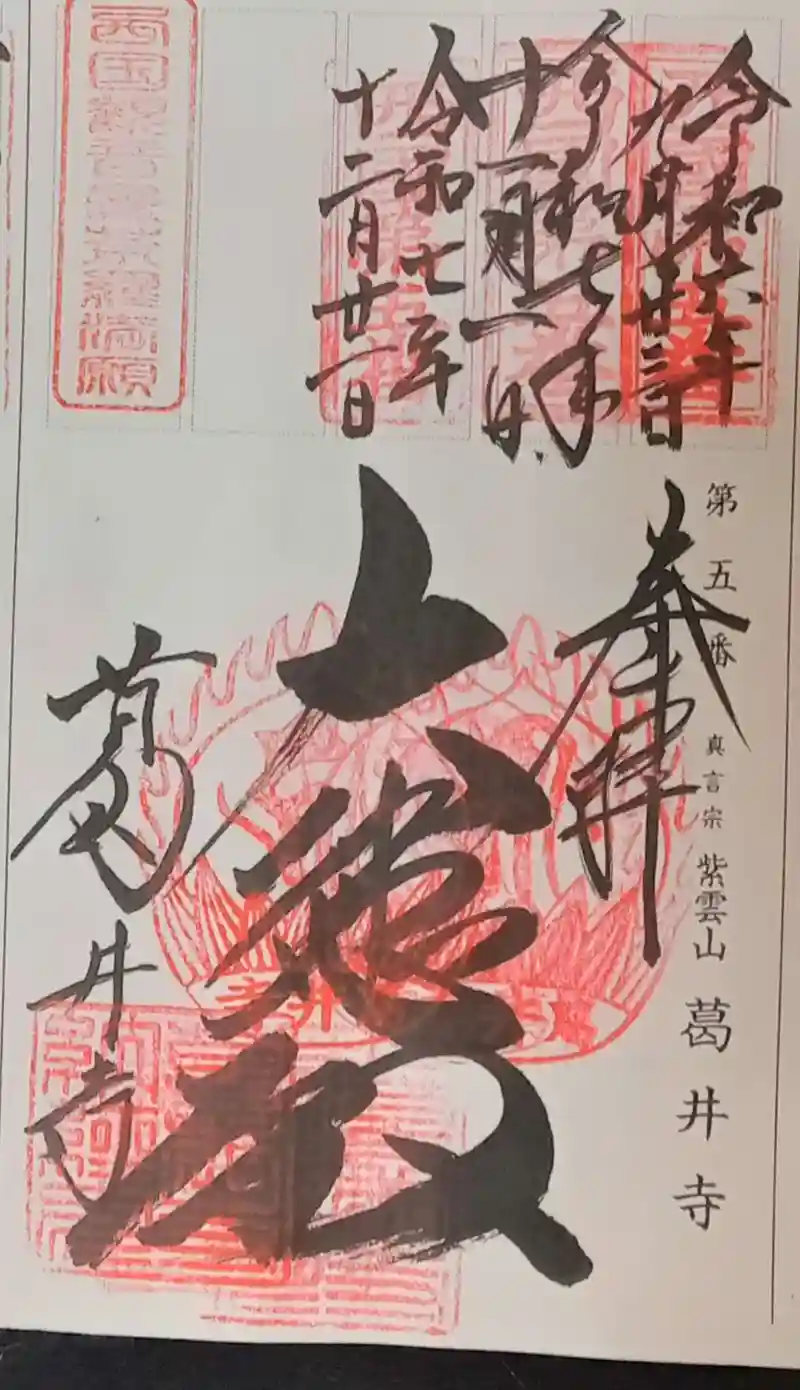 令和六年
九月廿三日
令和七年
十一月一日
令和七年
十二月廿一日
西国観音曼荼羅満願
第五番 真言宗 紫雲山 葛井寺
奉拝
大悲殿
葛井寺